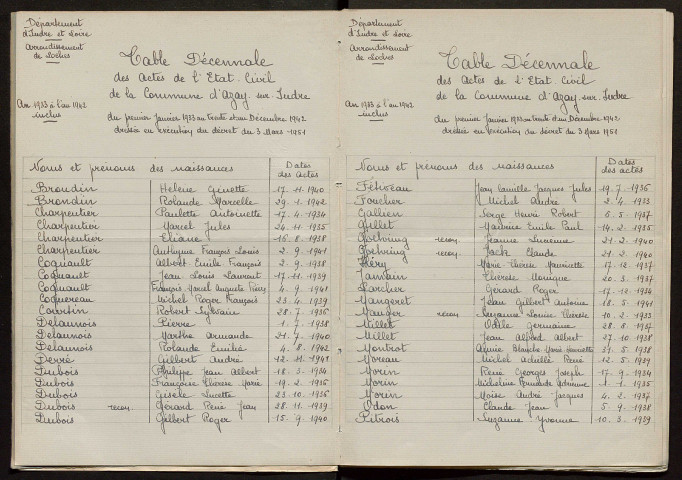 Département
d'Indre et Loire
Arrondissement
de Loches
An 1933 à l'an 1942
inclus
Table Décennale
des Actes de l'Etat Civil
de la Commune d'Azay sur Indre
du premier Janvier 1933 au trente et un Décembre 1942
dressée en exécution du décret du 3 Mars 1951
Noms et prénoms des naissances Dates des actes
Brondin Hélène Ginette 17.11.1940
Brondin Rolande Marcelle 29.1.1942
Charpentier Paulette Antoinette 17.4.1934
Charpentier Marcel Jules 24.11.1935
Charpentier Eliane 16.8.1938
Charpentier François Louis 2.9.1941
Coquault Albert Emile François 2.9.1938
Coquault Jean Louis Laurent 17.11.1939
Coquault François Marcel Auguste 4.9.1941
Coquereau Michel Roger François 23.4.1939
Robert Sylvain 28.7.1936
Delaunois Pierre 1.7.1938
Delaunois Marthe Armande 21.7.1940
Delaunois Rolande Emilie 4.8.1942
Derré Gilbert André 12.11.1941
Dubois Philippe Jean Albert 18.3.1934
Dubois Françoise Thérèse Marie 19.2.1936
Dubois Gisèle Lucette 23.10.1936
Dubois recon. Gérard René Jean 28.11.1939
Dubois Gilbert Roger 15.9.1940
Département
d'Indre et Loire
Arrondissement
de Loches
An 1933 à l'an 1942
inclus
Table Décennale
des Actes de l'Etat Civil
de la Commune d'Azay sur Indre
du premier Janvier 1933 au trente et un Décembre 1942
dressée en exécution du décret du 3 Mars 1951
Noms et prénoms des naissances Dates des actes
Jean Camille Jacques Jules 19.7.1936
Foucher Michel André 2.4.1933
Gallien Serge Henri Robert 6.5.1937
Gillet Maurice Emile Paul 14.2.1935
Goehring recon. Jeanne Lucienne 21.2.1940
Goehring recon. Jack Claude 21.2.1940
Héry Marie Thérèse Mauricette 17.12.1937
Jamain Thérèse Monique 20.3.1937
Larcher Gérard Roger 17.12.1934
Mangeret Jean Gilbert Antoine 18.5.1941
Mauger recon. Suzanne Louise Thérèse 10.2.1933
Millet Odile Germaine 28.8.1937
Millet Jean Alfred Albert 27.10.1938
Montrot Annie Blanche Marie Henriette 31.5.1938
Moreau Michel Achille René 12.5.1939
Morin René Georges Joseph 17.9.1934
Morin Micheline Fernande 1.1.1935
Morin Moïse André Jacques 4.2.1937
Odon Claude Jean 5.9.1938
Petrois Suzanne Yvonne 10.3.1939